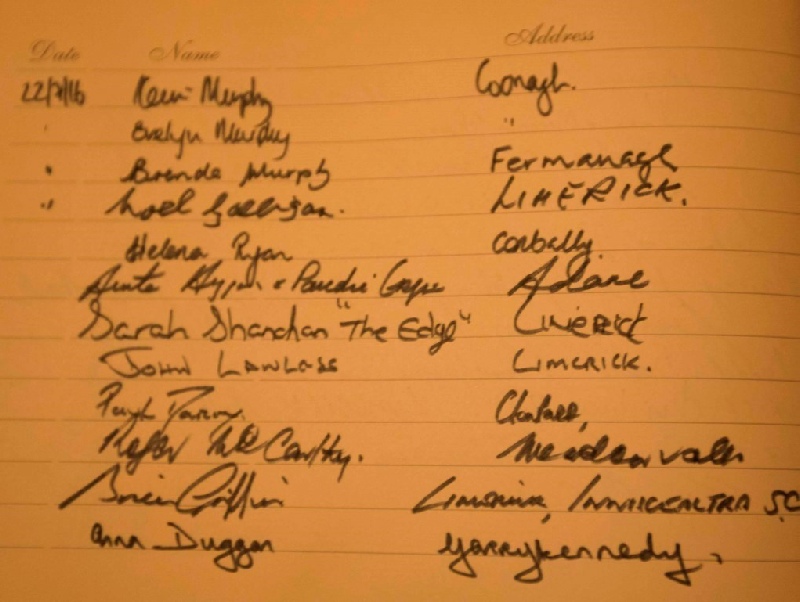 Date Name Address
22/7/16 Kevin Murphy Coonagh.
Evelyn Murphy "
" Brenda Murphy Fermanagh
" Noel Gallagan. LIMERICK.
Helena Ryan Corbally
Adare
Sarah Shanahan "The Edge" LIMERICK
JOHN LAWLESS LIMERICK.
McCarthy. Meadowvale
Brian Griffin LIMERICK, INNISCEALTRA S.C
Ann Duggan Garrykennedy.